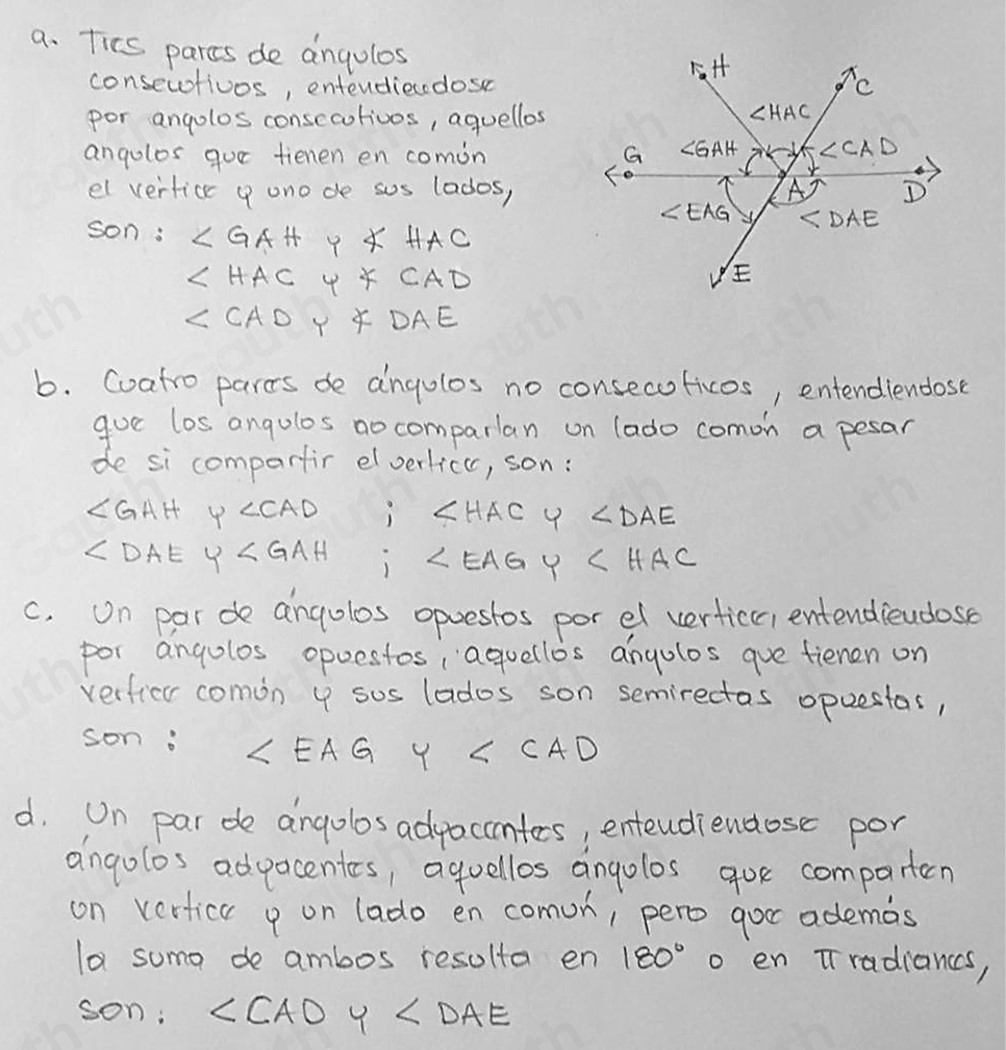 a. Tres pares de ángulos
consecutivos, entendiendose
por angulos consecutivos, aquellos
angulos que tienen en común
el vértice y uno de sus lados,
son: <GAH y ∡ HAC
< HAC y ∡ CAD
< CAD y ∡ DAE
H
C
<HAC
G
<GAH
<CAD
A
D
<EAG
<DAE
E
b. Cuatro pares de ángulos no consecuticos, entendiendose
que los angulos no comparlan un lado común a pesar
de si compartir el vertice, son:
<GAH y <CAD ; <HAC y <DAE
<DAE y <GAH ; <EAG y < HAC
c. Un par de ángulos opuestos por el vertice, entendiendose
por ángulos opuestos, aquellos ángulos que tienen un
vertice común y sus lados son semirectas opuestas,
son: < EAG y < CAD
d. Un par de ángulos adyacentes, entendiendose por
ángulos adyacentes, aquellos ángulos que comparten
un vertice y un lado en común, pero que además
la suma de ambos resulta en 180° o en π radianes,
son: <CAD y < DAE